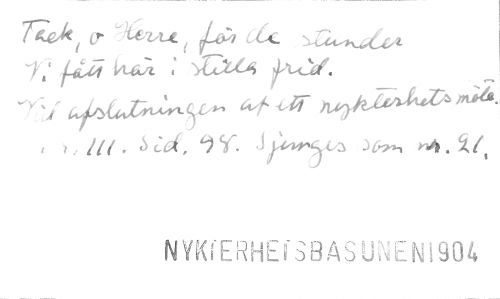 Tack, o Herre, för de stunder
Vi fått här i stilla frid.
Vid afslutningen af ett nykterhetsmöte.
Nr. 111. Sid. 98. Sjunges som nr. 21.
NYKTERHETSBASUNEN 1904